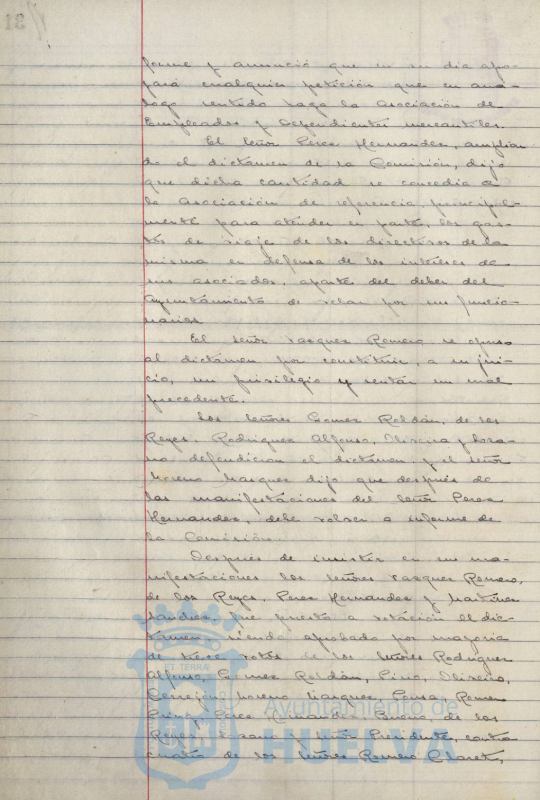 forme y anunció que en su dia apo-
yará cualquier petición que en aná-
logo sentido haga la Asociación de
Empleados y Dependientes mercantiles.
El Señor Perez Hernandez, amplian-
do el dictamen de su Comisión, dijo
que dicha cantidad se concedia a
la Asociación de referencia principal-
mente para atender en parte, los gas-
tos de viaje de los directivos de la
misma en defensa de los intereses de
sus asociados, aparte del deber del
Ayuntamiento de velar por sus funcio-
narios
El señor Vazquez Romero se opuso
al dictamen por constituir, a su jui-
cio, un privilegio y sentar un mal
precedente.
Los Señores Gomez Roldán, de los
Reyes, Rodriguez Alfonso, Oliveira y
defendieron el dictamen y el señor
Moreno Marquez dijo que después de
las manifestaciones del Señor Perez
Hernandez, debe volver a informe de
la Comisión.
Después de insistir en sus ma-
nifestaciones los señores Vazquez Romero,
de los Reyes, Perez Hernandez y Martinez
Sanchez, fue puesto a votación el dic-
tamen, siendo aprobado por mayoria
de trece votos de los señores Rodriguez
Alfonso, Gomez Roldán, Pino, Oliveira,
Cerrejón, Moreno Marquez, Ponce, Romero
Perez Hernandez, Bueno, de los
Reyes, y Señor Presidente, contra
cuatro de los señores Romero Claret,
ET TERRAE
Ayuntamiento de
HUELVA